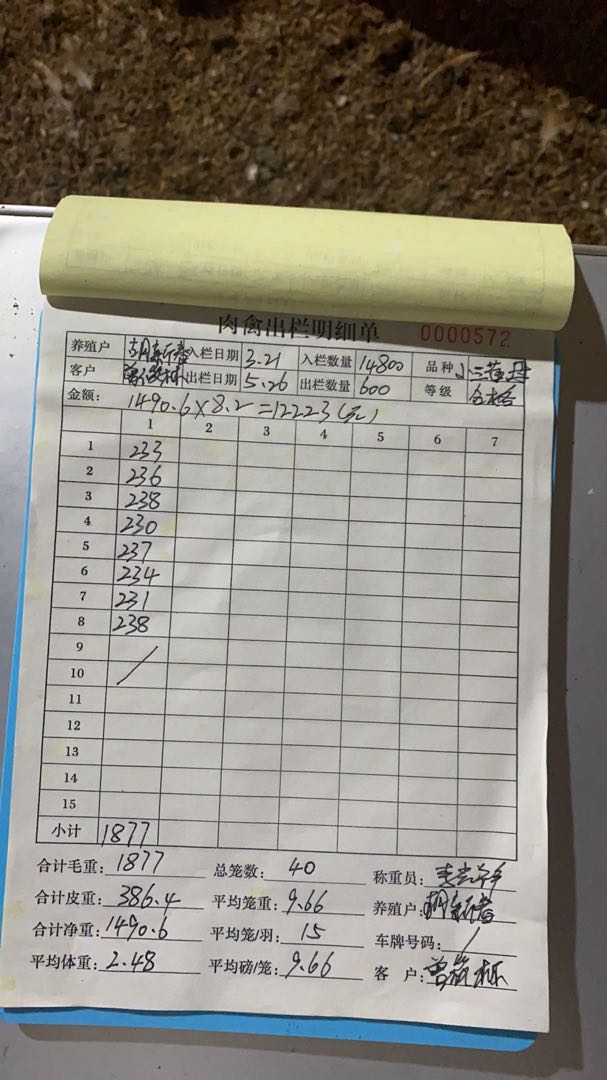 肉禽出栏明细单 0000572
养殖户 入栏日期 3.21 入栏数量 14800 品种
客户 出栏日期 5.26 出栏数量 600 等级 合格
金额: 1490.6×8.2=12223(元)
1 2 3 4 5 6 7
1 233
2 236
3 238
4 230
5 237
6 234
7 231
8 238
9
10
11
12
13
14
15
小计 1877
合计毛重: 1877 总笼数: 40 称重员:
合计皮重: 386.4 平均笼重: 9.66 养殖户:
合计净重: 1490.6 平均笼/羽: 15 车牌号码: /
平均体重: 2.48 平均磅/笼: 9.66 客 户: